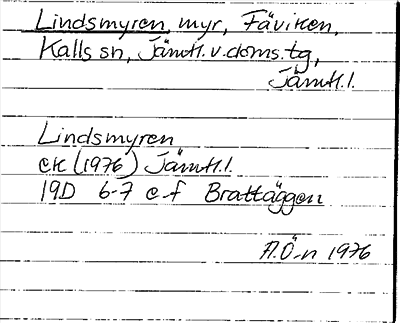 Lindsmyren, myr, Fäviken,
Kalls sn, Jämtl. v. doms. tg,
Jämtl. l.
Lindsmyren
ek (1976) Jämtl. l.
19D 6-7 e-f Brattäggen
A.Ö-n 1976